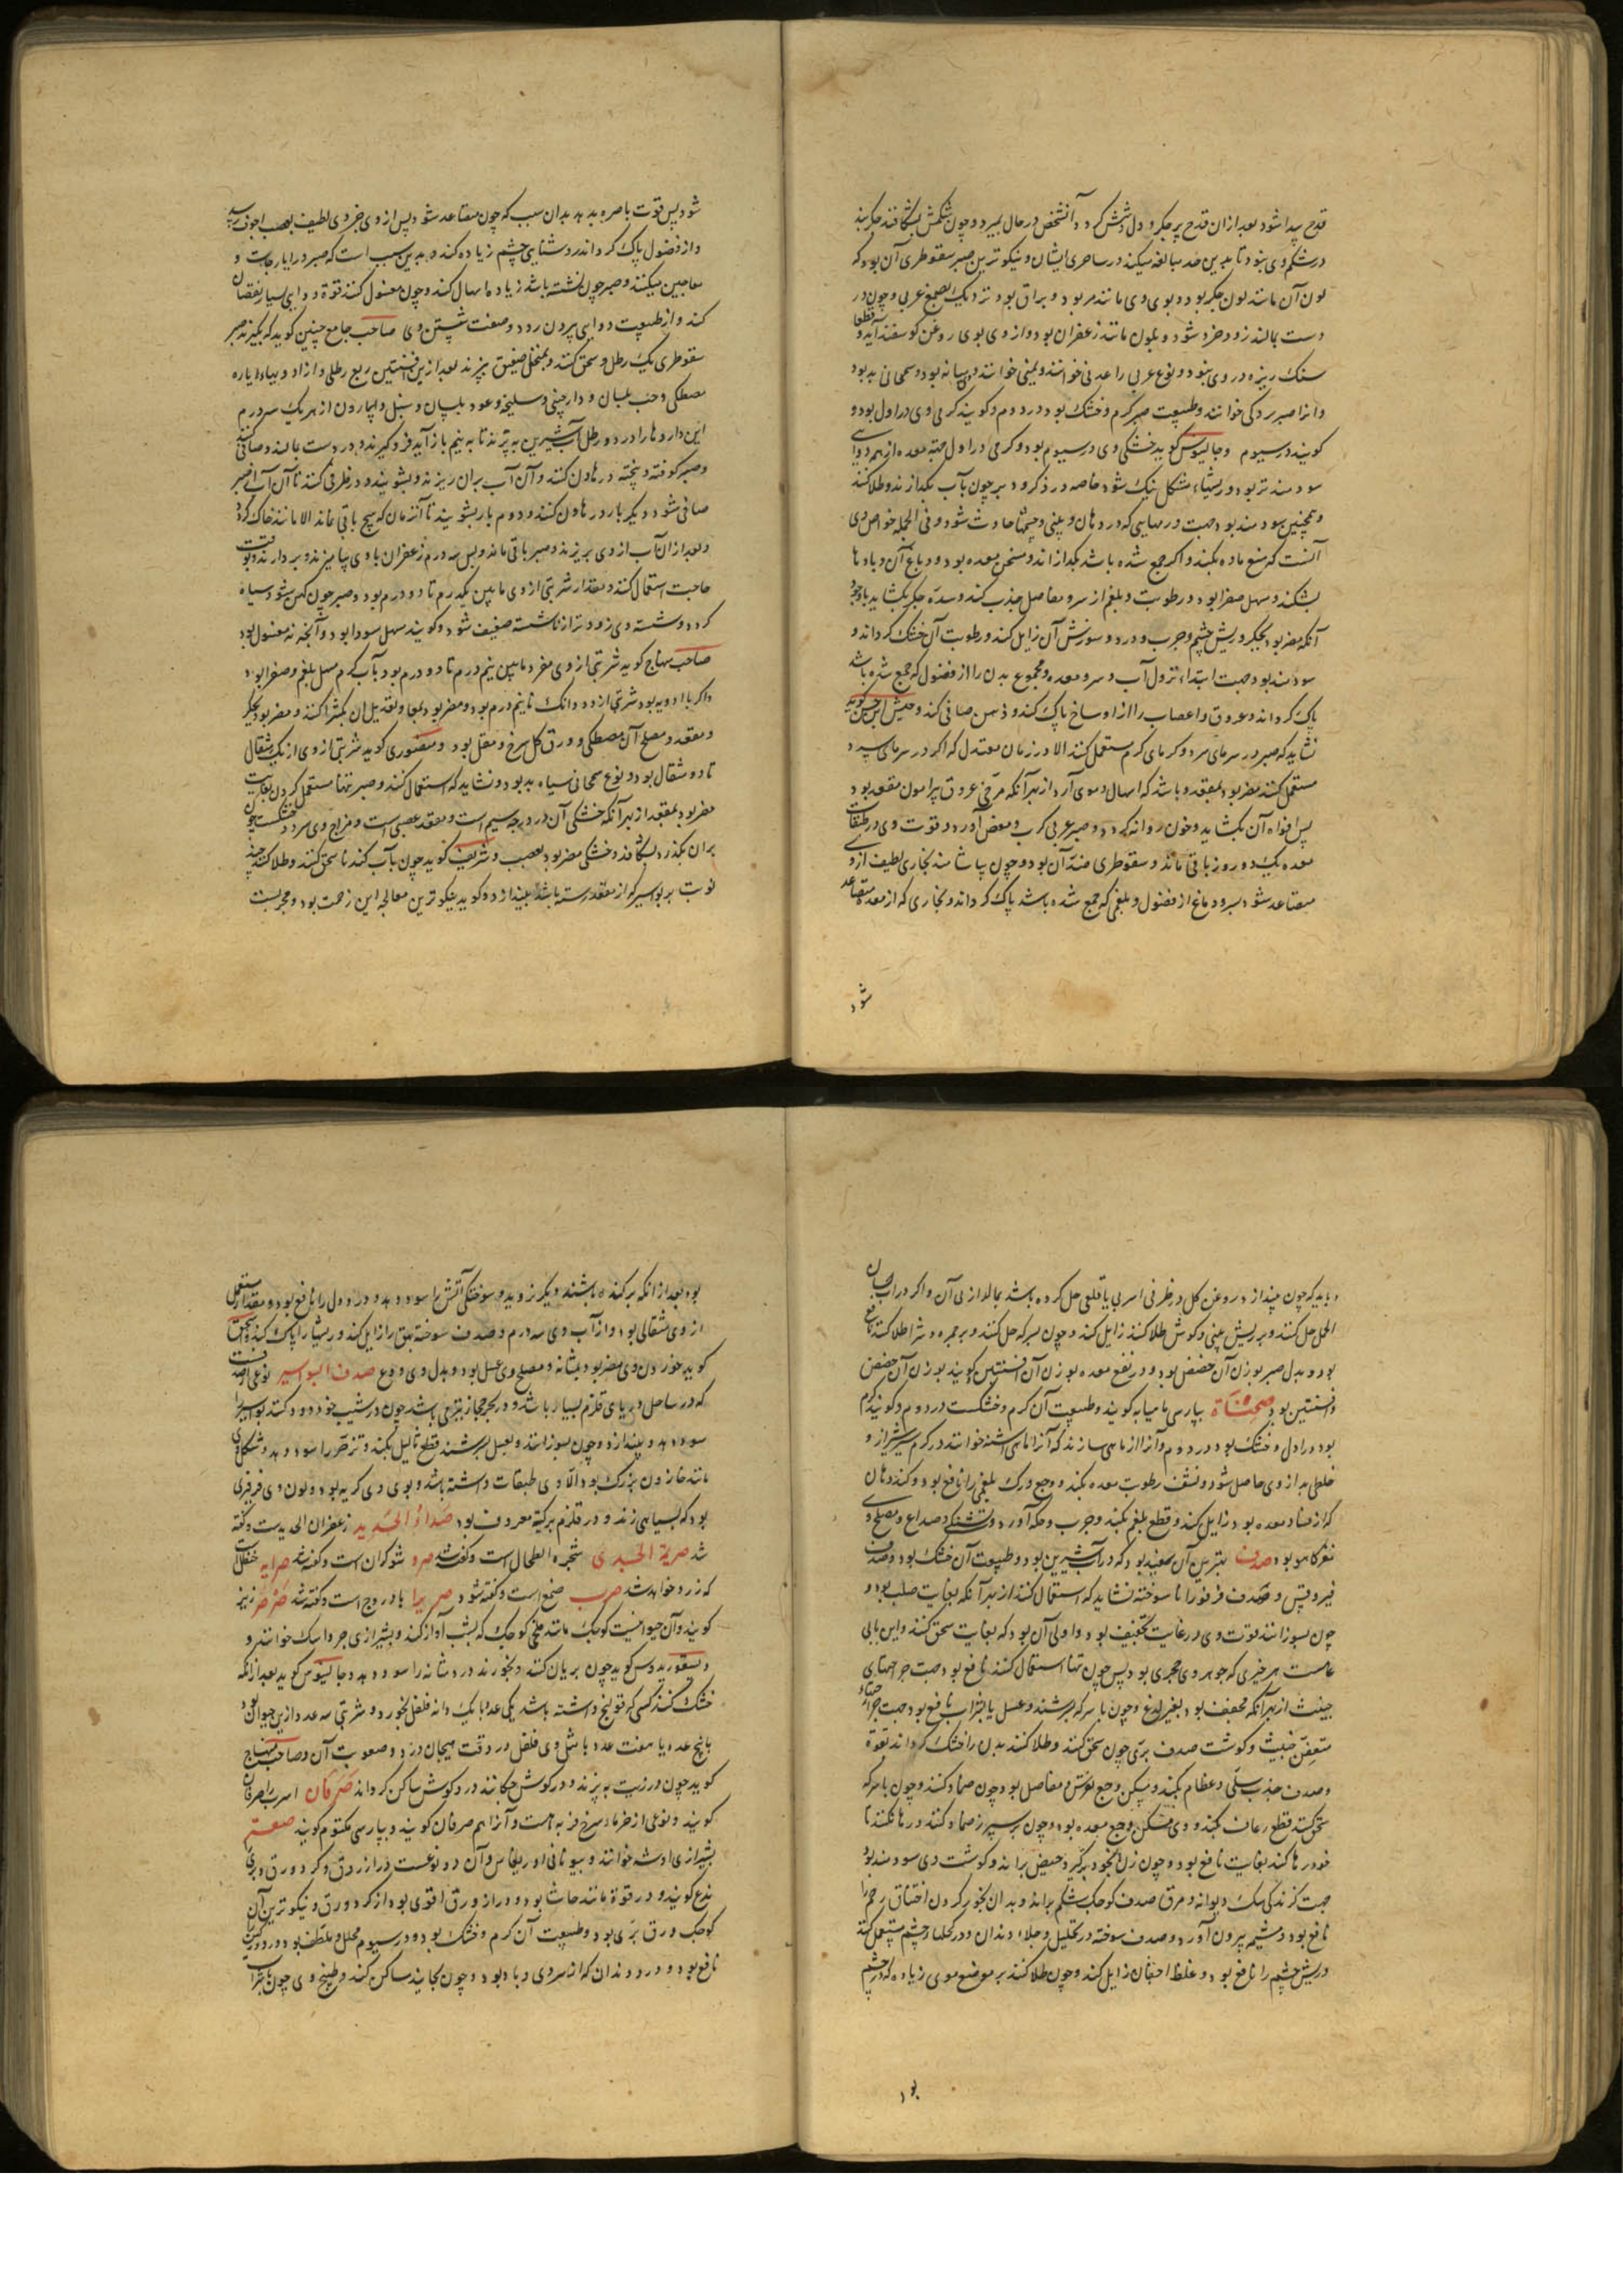 قدح پیدا شود بعد از ان قدح پر جکر و دل شمش کردد آنشخص در حال بمیرد و چون شکمش بشکافند جکر بند
در شکم وی نبود تا بدین حد مبالغه میکند در ساحری ایشان و نیکوترین صبر سقوطری آن بود که
لون آن مانند لون جکر بود و بوی وی مانند مر بود و براق بود و نزدیک بصمغ عربی و چون در
دست بمالند زود خرد شود و بلون مانند زعفران بود و از وی بوی روغن کوسفند آید و قطعا
سنک ریزه در وی نبود و نوع عربی را عدنی خوانند و یمنی خوانند و میانه بود و سمحانی بد بود
و انرا صبر بردکی خوانند و طبیعت صبر کرم و خشک بود در دوم و کویند کرمی وی در اول بود و
کویند در سیوم و جالینوس کوید خشکی وی در سیوم بود و کرمی در اول جهة معده از همه دوای
سودمندتر بود و ریشهاء مشکل نیک شود خاصه در ذکر و دبر چون بآب بکدازند و طلا کنند
و همچنین سودمند بود جهت ورمهایی که در دهان و بینی و چشمها حادث شود و فی الجمله خواص وی
آنست که منع ماده بکند و اکر جمع شده باشد بکدازاند و مسخن معده بود و دباغ آن و بادها
بشکند و مسهل صفرا بود و رطوبت و بلغم از سر و مفاصل جذب کند و سدهٔ جکر بکشاید با وجود
آنکه مضر بود بجکر و ریش چشم و جرب و درد و سوزش آن زایل کند و رطوبت آن خشک کرداند و
سودمند بود جهت ابتداء نزول آب و سر و معده و مجموع بدن را از فضول که جمع شده باشد
پاک کرداند و عروق و اعصاب را از اوساخ پاک کند و ذهن صافی کند و حبیش ابن حسن کوید
نشاید که صبر در سرمای سرد و کرمای کرم مستعمل کنند الا در زمان معتدل که اکر در سرمای سرد
مستعمل کنند مضر بود بمقعد و باشد که اسهال دموی آرد از بهر آنکه مرخی عروق پیرامون مقعد بود
پس افواه آن بکشاید و خون روانه کردد و صبر عربی کرب و مغص آورد و قوت وی در طبقات
معده یک دو روز باقی ماند و سقوطری ضد آن بود و چون بیاشامند بخاری لطیف از وی
متصاعد شود بسر و دماغ از فضول و بلغمی که جمع شده باشد پاک کرداند و بخاری که از معده متصاعد
شود
شود پس قوت باصره بدهد بدان سبب که چون متصاعد شود پس از وی جزوی لطیف بعصب اجوف رسد
و از فضول پاک کرداند و روشنایی چشم زیاده کند و بدین سبب است که صبر در ایارجات و
معاجین میکنند و صبر چون نشسته باشد زیاده اسهال کند و چون مغسول کنند قوة دوایی بسیار نقصان
کند و از طبیعت دوایی بیرون رود و صفت شستن وی صاحب جامع چنین کوید که بکیرند صبر
سقوطری یک رطل و سحق کنند و بمنخل ضیق بیزند بعد از ین افسنتین ربع رطلی و ازادویهاء ایاره
مصطکی و حب بلسان و دارچینی و سلیخه و عود بلسان و سنبل و اسارون از هر یک سه درم
این داروها را در دو رطل آب شیرین بپزند تا به نیم باز آید فرو کیرند و در دست بمالند و صافی کنند
و صبر کوفته و بیخته در هاون کنند و آن آب بران ریزند و بشویند و در ظرفی کنند تا آن آب از صبر
صافی شود و دیکر بار در هاون کنند و دوم بار بشویند تا آنزمان که هیچ باقی نماند الا مانند خاک کرد
و بعد از ان آب از وی بریزند و صبر باقی ماند و پس سه درم زعفران با وی بیامیزند و بردارند و بوقت
حاجت استعمال کنند و مقدار شربتی از وی مابین یکدرم تا دو درم بود و صبر چون کهن شود سیاه
کردد و شسته وی زودتر از ناشسته ضعیف شود و کویند مسهل سودا بود و آنجه نه مغسول بود
صاحب منهاج کوید شربتی از وی مفرد مابین نیم درم تا دو درم بود بآب کرم مسهل بلغم و صفرا بود
و اکر با ادویه بود شربتی از دو دانک تا نیم درم بود و مضر بود بمعا و تعدیل آن بکثیرا کنند و مضر بود بجکر
و مقعد و مصلح آن مصطکی و ورق کل سرخ و مقل بود و منصوری کوید شربتی از وی از یک مثقال
تا دو مثقال بود و نوع سمحانی سیاه بد بود و نشاید که استعمال کنند و صبر تنها مستعمل کردن بغایت
مضر بود بمقعد از بهر آنکه خشکی آن در درجه سیم است و مقعد عصبی است و مزاج وی سرد و خشکست چون
بران بکذرد بشکافد و خشکی مضر بود بعصب و شریف کوید چون بآب کندنا سحق کنند و طلا کنند چند
نوبت بر بواسیر که از مقعد رسته باشد بیندازد و کوید نیکوترین معالجه این زحمت بود و مجربست
و باید که چون بیندازد روغن کل در ظرفی اسربی یا قلعی حل کرده باشد بمالد از پی آن و اکر در آب لسان
الحمل حل کنند و بر ریش بینی و کوش طلا کنند زایل کند و چون بسرکه حل کنند و بر جمره و شرا طلا کنند نافع
بود و بدل صبر بوزن آن حضض بود و در نفع معده بوزن آن افسنتین کویند بوزن آن حضض
و افسنتین بود صحنشاة بپارسی ماهیابه کویند و طبیعت آن کرم و خشکست در دوم و کویند کرم
بود در اول و خشک بود در دوم و آنرا از ماهی سازند که آنرا ماهی اشنه خوانند در کرم سیر شیراز و
خلطی بد از وی حاصل شود و نشف رطوبت معده بکند و وجع ورک بلغمی را نافع بود و کند دهان
که از فساد معده بود زایل کند و قطع بلغم بکند و جرب و حکه آورد و تشنکی و صداع و مصلح وی
مغز کاهو بود صدف بهترین آن سفید بود که در آب شیرین بود و طبیعت آن خشک بود و صدف
فیروقس و صدف فرفورا نا سوخته نشاید که استعمال کنند از بهر آنکه بغایت صلب بود و
چون بسوزانند قوت وی در غایت تجفیف بود و اولی آن بود که بغایت سحق کنند و این بابی
عامست هر چیزی که جوهر وی حجری بود پس چون تنها استعمال کنند نافع بود جهت جراحتهای
خبیث از بهر آنکه مجفف بود بغیر لذع و چون با سرکه بسرشند و عسل یا بشراب نافع بود جهت جراحتهاء
متعفن خبیث و کوشت صدف بری چون سحق کنند و طلا کنند بدن را خشک کرداند بقوة
و صدف جذب سلی و عظام بکند و مسکن وجع نقرس و مفاصل بود چون ضماد کنند و چون با سرکه
سحق کنند قطع رعاف بکند و وی مسکن وجع معده بود و چون بر سپرز ضماد کنند و رها نکنند تا
خود رها کند بغایت نافع بود و چون زن بخود برکیرد حیض براند و کوشت وی سودمند بود
جهت کزندکی سک دیوانه و مرق صدف کوچک شکم براند و بدان بخور کردن اختناق رحم را
نافع بود و مشیمه بیرون آورد و صدف سوخته در تحلیل و جلاء دندان و در کحلهاء چشم مستعمل کنند
و ریش چشم را نافع بود و غلظ اجفان زایل کند و چون طلا کنند بر موضع موی زیاده که در چشم
بود
بود بعد از انکه برکنده باشند دیکر نروید و سوختکی آتش را سود دهد و درد دل را نافع بود و مقدار مستعمل
از وی مثقالی بود و از آب وی سه درم و صدف سوخته بهق را زایل کند و ریشها را پاک کند و اسحق
کوید خوردن وی مضر بود بمثانه و مصلح وی عسل بود و بدل وی ودع صدف البواسیر نوعی از صدفست
که در ساحل دریای قلزم بسیار باشد و در بحر حجاز نیز می باشد چون در شیب خود دود کنند بواسیر را
سود دهد و بیندازد و چون بسوزانند و بعسل بسرشند قطع ثآلیل بکند و تزحر را سود دهد و شکل وی
مانند حلزون بزرک بود الا وی طبقات داشته باشد و بوی وی کریه بود و لون وی فرفیری
بود که بسیاهی زند و در قلزم برکبة معروف بود صداء الحدید زعفران الحدید ست و کفته
شد صریمة الجدی شجره الطحال است و کفته شد صرو شوکران است و کفته شد صرایه حنظل است
که زرد خواهد شد صرب صمغ است و کفته شود صریرا بادروج است و کفته شد صرصر نیز
کویند و آن حیوانیست کوچک مانند ملخی کوچک که بشب آواز کند و بشیرازی جرواسک خوانند و
دیسقوریدوس کوید چون بریان کنند و بخورند درد مثانه را سود دهد و جالینوس کوید بعد از انکه
خشک کنند کسی که قولنج داشته باشد یکی عدد با یک دانه فلفل بخورد و شربتی سه عدد ازین حیوان بود
یا پنج عدد یا هفت عدد با مثل وی فلفل در وقت هیجان درد و صعوبت آن و صاحب منهاج
کوید چون در زیت بپزند و در کوش چکانند درد کوش ساکن کرداند صرفان اسرب را صرفان
کویند و نوعی از خرماء سرخ فربه است و آنرا هم صرفان کویند و بپارسی مکتوم کویند صعتر
بشیرازی اوشه خوانند و بیونانی اوریغانس و آن دو نوعست دراز ورق و کرد ورق و بری
ندغ کویند و در قوة مانند حاشا بود و دراز ورق اقوی بود از کرد ورق و نیکوترین آن
کوچک ورق بری بود و طبیعت آن کرم و خشک بود در سیوم محلل و ملطف بود و درد ورک را
نافع بود و درد دندان که از سردی و باد بود و چون بخایند ساکن کند و طبیخ وی چون بشراب